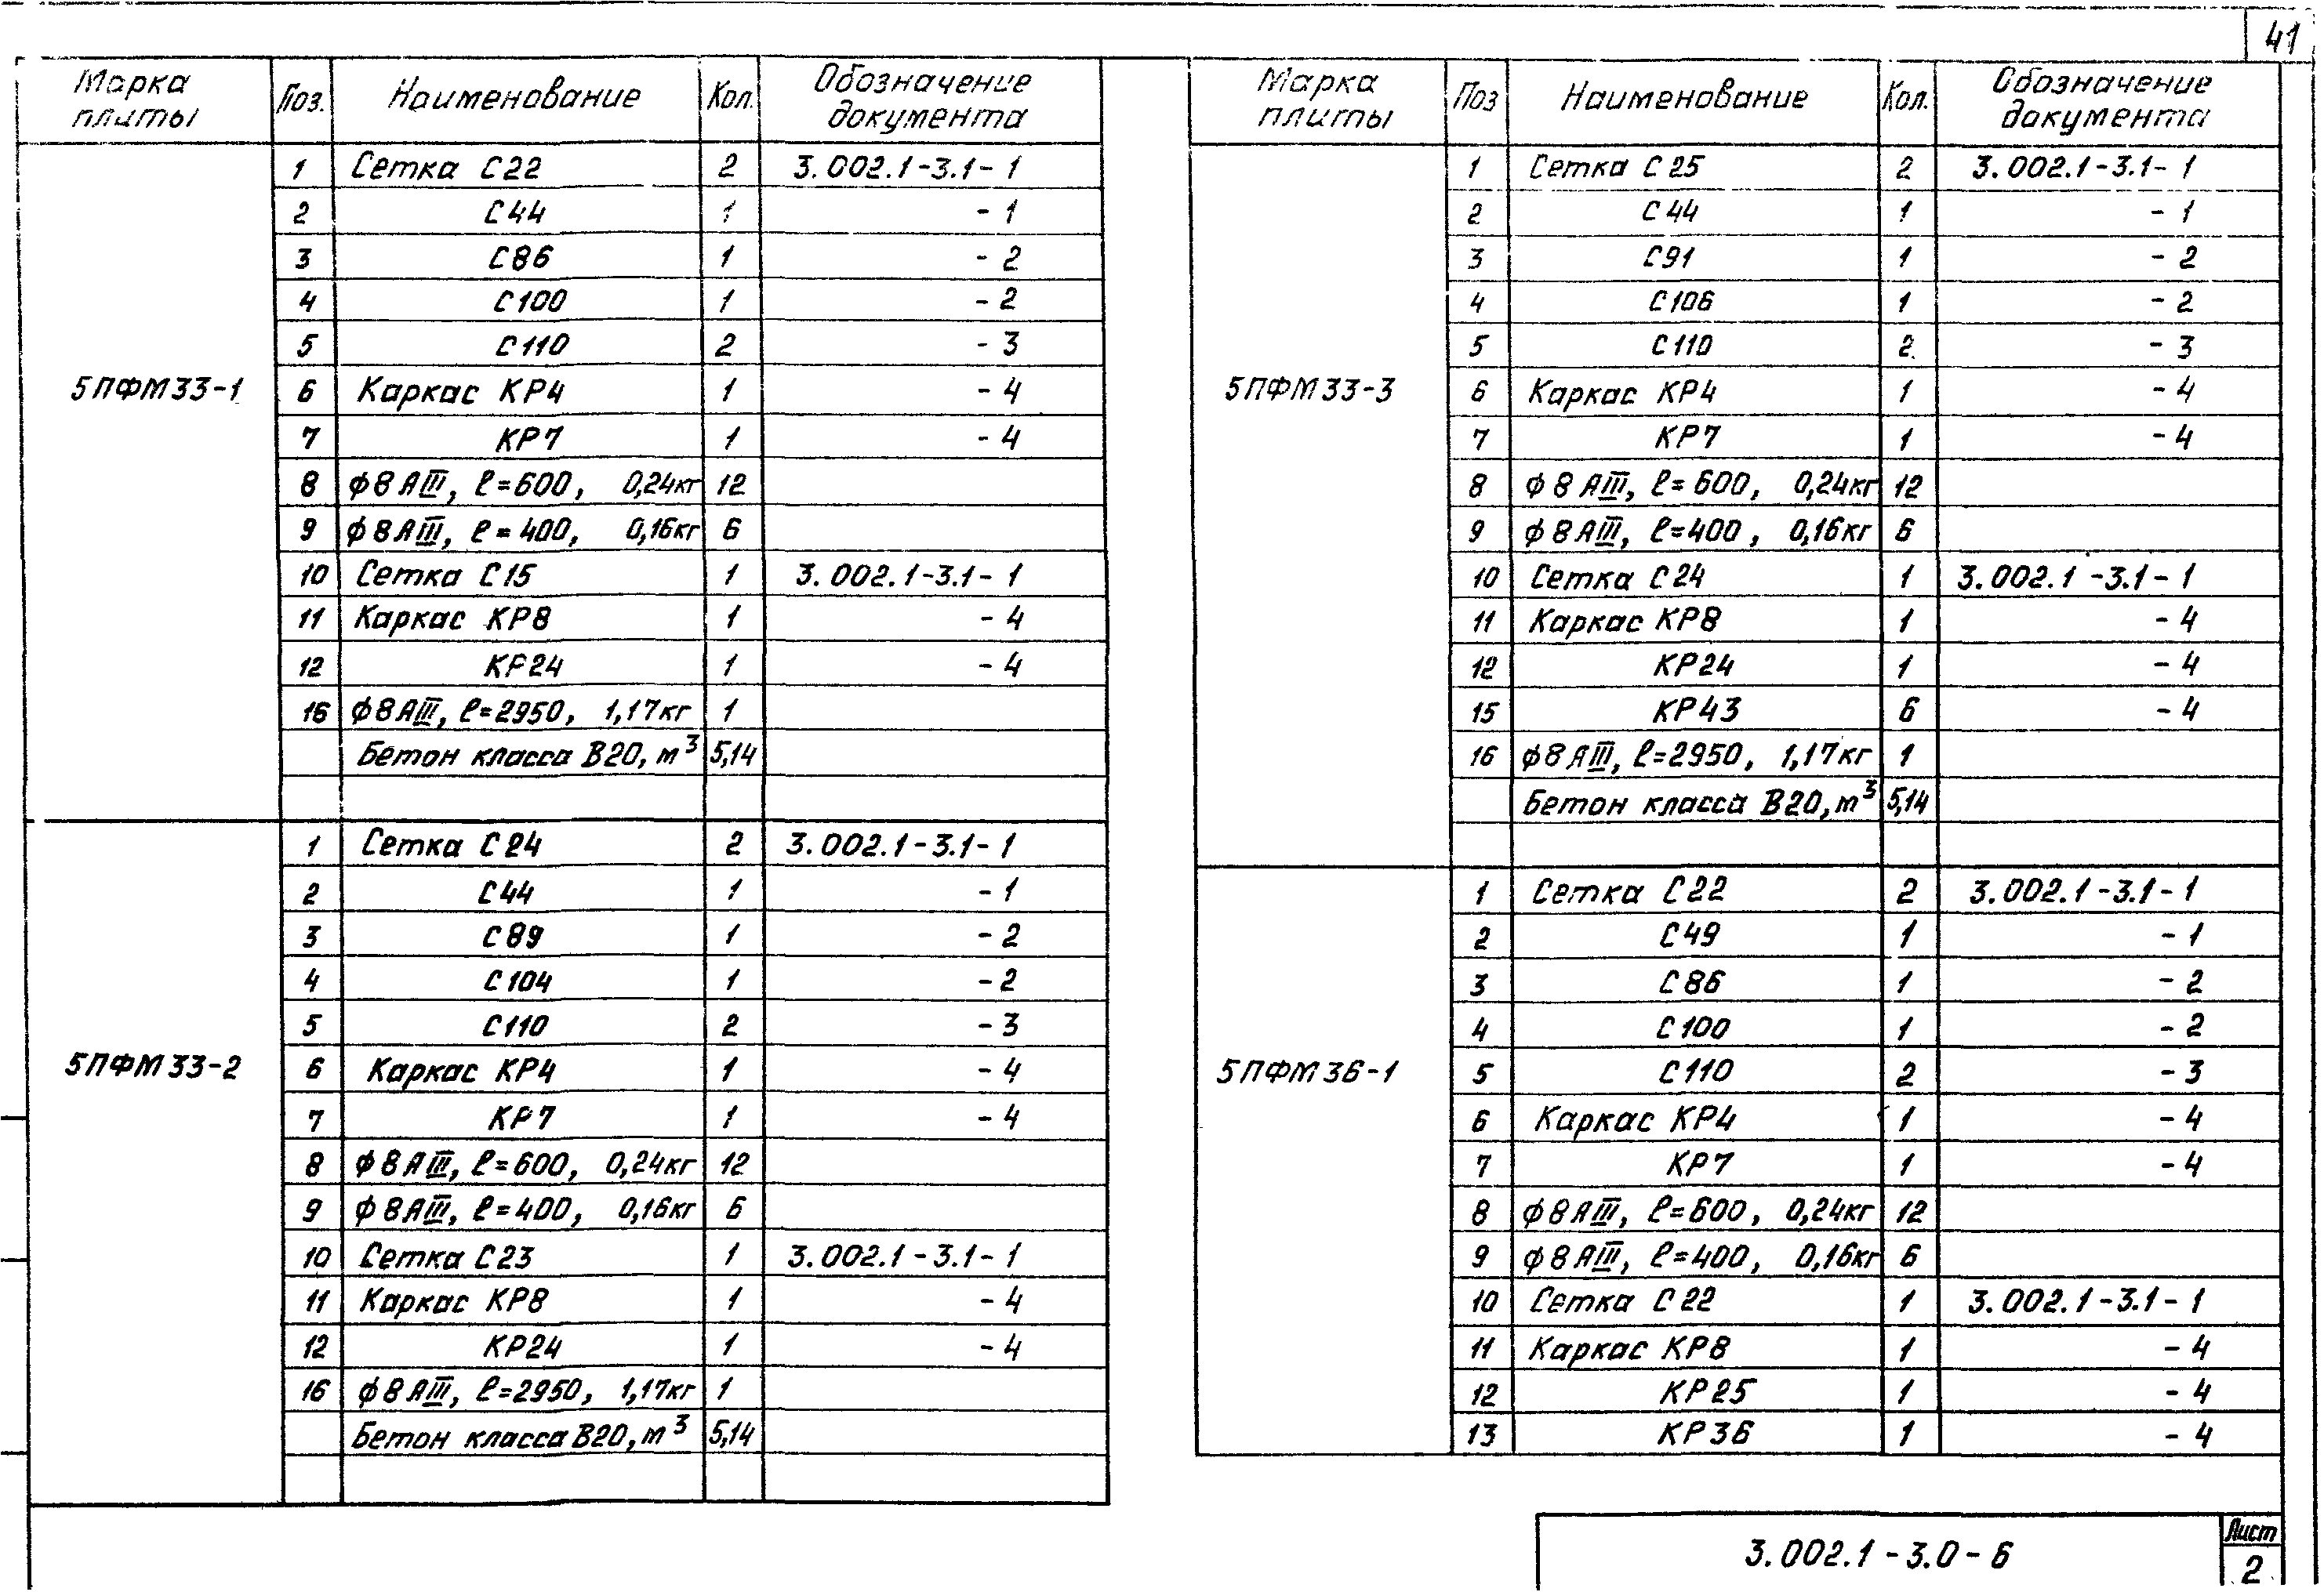 41
Марка плиты Поз. Наименование Кол. Обозначение документа
1 Сетка С22 2 3.002.1-3.1-1
2 С44 1 -1
3 С86 1 -2
4 С100 1 -2
5 С110 2 -3
5ПФМ33-1 6 Каркас КР4 1 -4
7 КР7 1 -4
8 ф8АIII, ℓ=600, 0,24кг 12
9 ф8АIII, ℓ=400, 0,16кг 6
10 Сетка С15 1 3.002.1-3.1-1
11 Каркас КР8 1 -4
12 КР24 1 -4
16 ф8АIII, ℓ=2950, 1,17кг 1
Бетон класса В20, м³ 5,14
1 Сетка С24 2 3.002.1-3.1-1
2 С44 1 -1
3 С89 1 -2
4 С104 1 -2
5 С110 2 -3
5ПФМ33-2 6 Каркас КР4 1 -4
7 КР7 1 -4
8 ф8АIII, ℓ=600, 0,24кг 12
9 ф8АIII, ℓ=400, 0,16кг 6
10 Сетка С23 1 3.002.1-3.1-1
11 Каркас КР8 1 -4
12 КР24 1 -4
16 ф8АIII, ℓ=2950, 1,17кг 1
Бетон класса В20, м³ 5,14
Марка плиты Поз Наименование Кол. Обозначение документа
1 Сетка С25 2 3.002.1-3.1-1
2 С44 1 -1
3 С91 1 -2
4 С106 1 -2
5 С110 2 -3
5ПФМ33-3 6 Каркас КР4 1 -4
7 КР7 1 -4
8 ф8АIII, ℓ=600, 0,24кг 12
9 ф8АIII, ℓ=400, 0,16кг 6
10 Сетка С24 1 3.002.1-3.1-1
11 Каркас КР8 1 -4
12 КР24 1 -4
15 КР43 6 -4
16 ф8АIII, ℓ=2950, 1,17кг 1
Бетон класса В20, м³ 5,14
1 Сетка С22 2 3.002.1-3.1-1
2 С49 1 -1
3 С86 1 -2
4 С100 1 -2
5ПФМ36-1 5 С110 2 -3
6 Каркас КР4 1 -4
7 КР7 1 -4
8 ф8АIII, ℓ=600, 0,24кг 12
9 ф8АIII, ℓ=400, 0,16кг 6
10 Сетка С22 1 3.002.1-3.1-1
11 Каркас КР8 1 -4
12 КР25 1 -4
13 КР36 1 -4
3.002.1-3.0-6 Лист
2